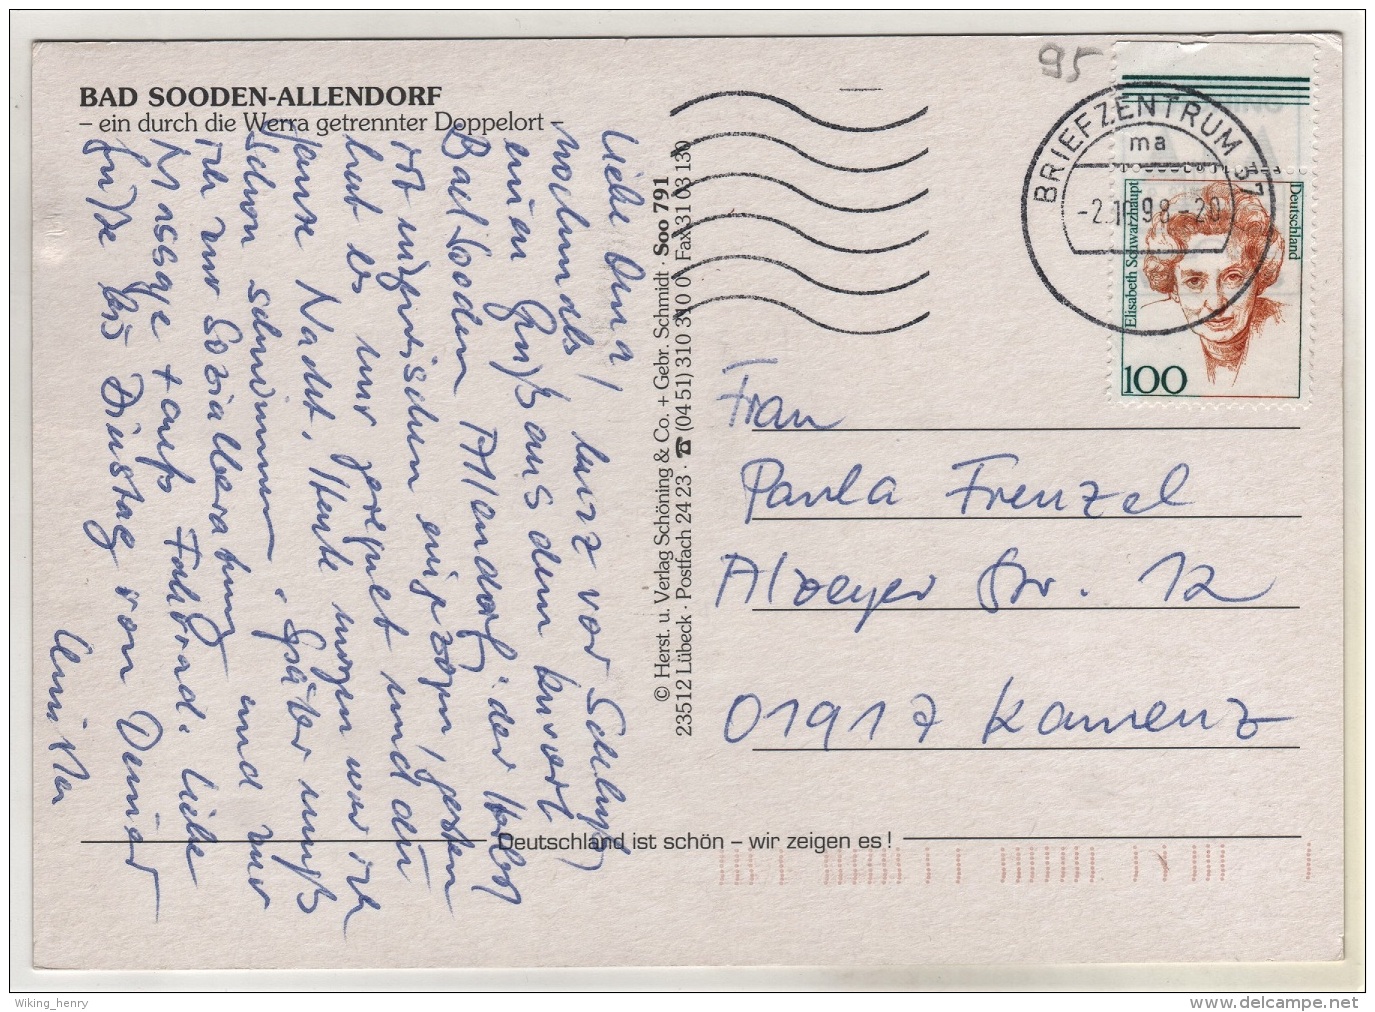 BAD SOODEN-ALLENDORF
– ein durch die Werra getrennter Doppelort –
Liebe Oma, kurz vor Schluß
nochmals
einen Gruß aus dem kurort
Bad Sooden Allendorf. der Herbst
ist inzwischen eingezogen, gestern
hat es nur geregnet und die
ganze Nacht. Heute morgen war ich
schon schwimmen. Später muß
ich zur Sozialberatung und zur
Massage + aufs Fahrrad. Liebe
Grüße bis Dienstag von Deiner
© Herst. u. Verlag Schöning & Co. + Gebr. Schmidt · Soo 791
23512 Lübeck · Postfach 24 23 · ☎ (04 51) 310 310 0 · Fax 31 03 130
95
BRIEFZENTRUM 37
ma
-2.10.98-20
Deutschland
Elisabeth Schwarzhaupt
100
Frau
Paula Frenzel
Str. 12
01917 Kamenz
Deutschland ist schön – wir zeigen es !
Wiking_henry
www.delcampe.net